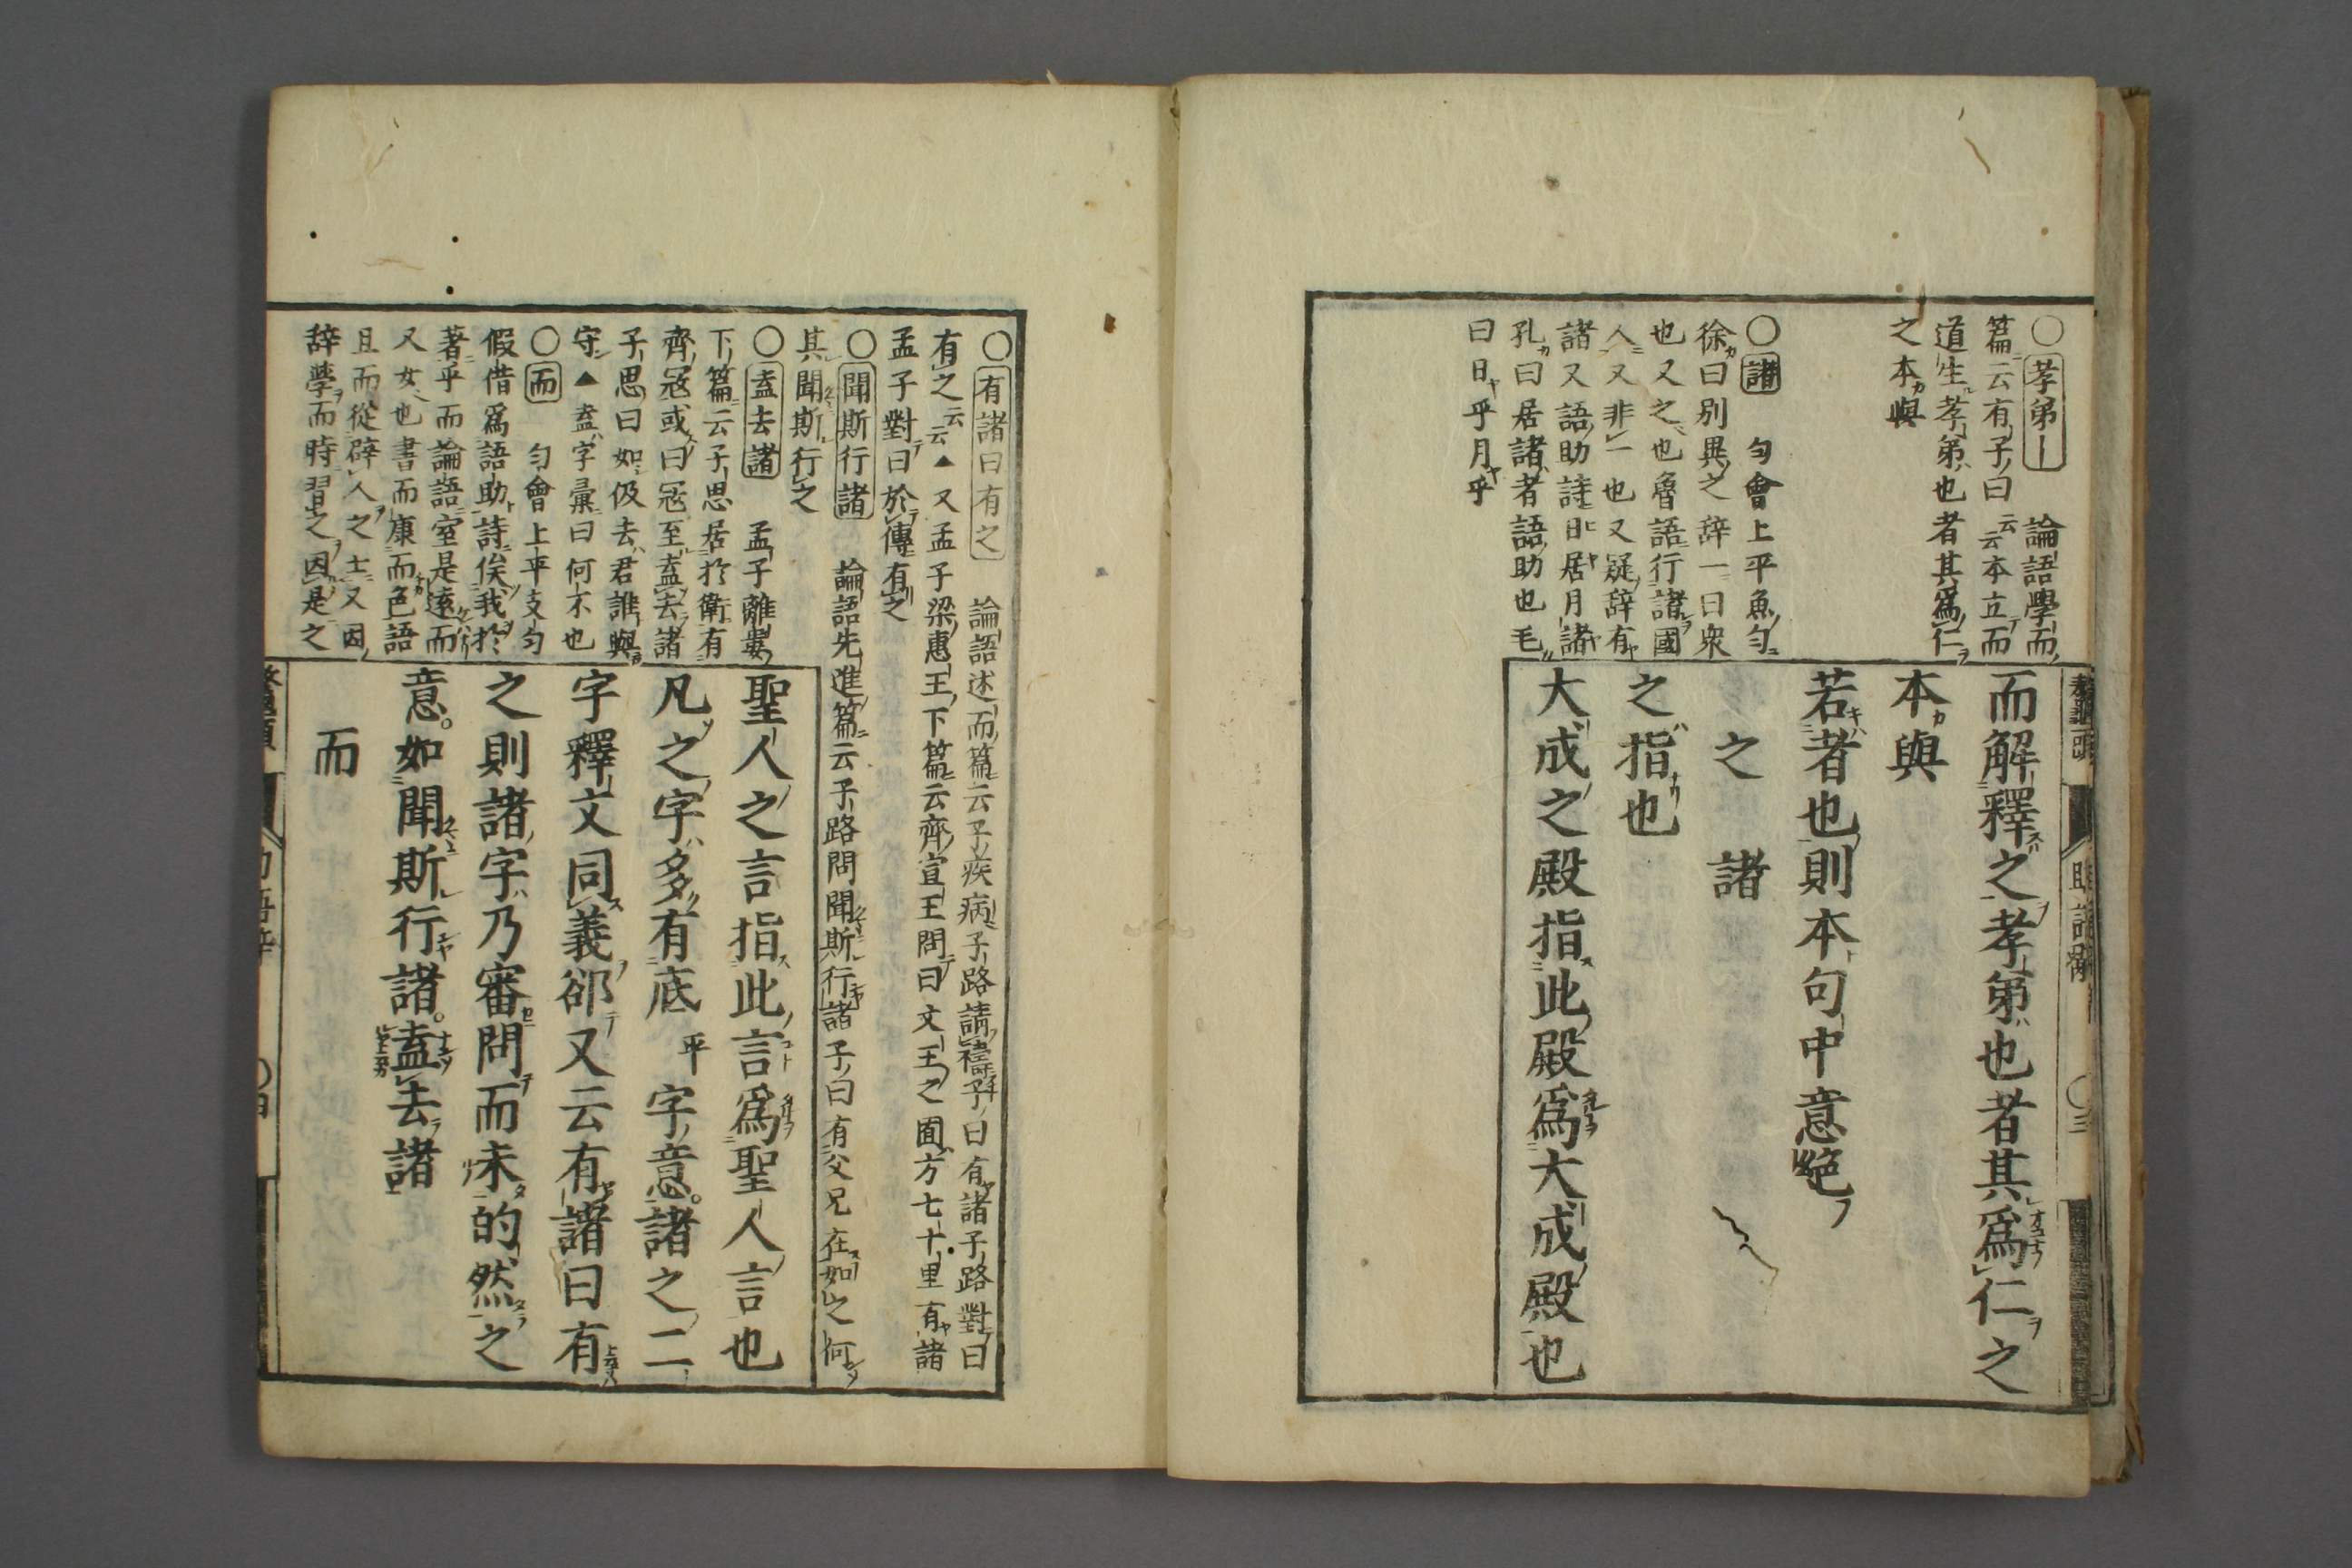 ○孝弟｜　論語學而
篇云有子曰云云本立而
道生孝弟也者其爲仁
之本與
○諸　匀會上平魚匀
徐曰別異之辞一曰衆
也又之也魯語行諸國
人又非一也又疑辞有
諸又語助詩日居月諸
孔曰居諸者語助也毛
曰日乎月乎
而解釋之孝弟也者其爲仁之
本與
若者也則本句中意絶
之　諸
之指也
大成之殿指此殿爲大成殿也
鼇頭　助語辞　○三
○有諸曰有之　論語述而篇云子疾病子路請禱子曰有諸子路對曰
有之云云▲又孟子梁惠王下篇云齊宣王問曰文王之囿方七十里有諸
孟子對曰於傳有之
○聞斯行諸　論語先進篇云子路問聞斯行諸子曰有父兄在如之何
其聞斯行之
○盍去諸　孟子離婁
下篇云子思居於衛有
齊冦或曰冦至盍去諸
子思曰如伋去君誰與
守▲盍字彙曰何不也
○而　匀會上平支匀
假借爲語助詩俟我於
著乎而論語室是遠而
又女也書而康而色語
且而從辟人之士又因
辞學而時習之因是之
聖人之言指此言爲聖人言也
凡之字多有底平字意。諸之二
字釋文同義郤又云有諸曰有
之則諸字乃審問而未的然之
意。如聞斯行諸。盍去諸
而
鼇頭　助語辞　○四